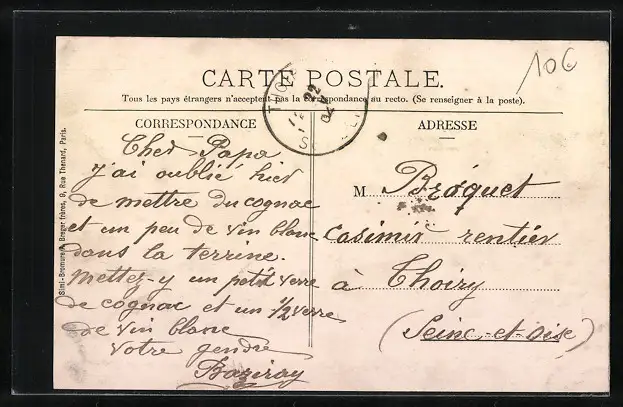 10C
CARTE POSTALE.
Tous les pays étrangers n'acceptent pas la Correspondance au recto. (Se renseigner à la poste).
CORRESPONDANCE
Cher Papa
J'ai oublié hier
de mettre du cognac
et un peu de vin blanc
dans la terrine.
Mettez-y un petit verre
de cognac et un 1/2 verre
de vin blanc
Votre gendre
Baziray
ADRESSE
M Broquet
Casimir rentier
à Thoiry
(Seine-et-Oise)
Simi-Bromure A. Breger frères, 9, Rue Thenard, Paris.
22
04